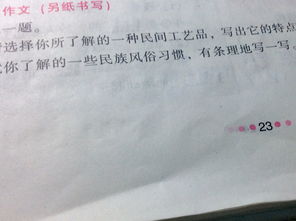 作文（另纸书写）
一题。
选择你所了解的一种民间工艺品，写出它的特点
你了解的一些民族风俗习惯，有条理地写一写。
23